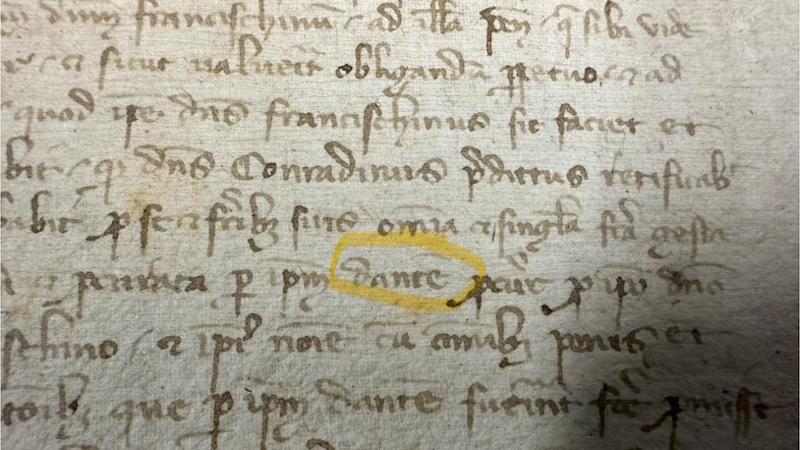 dnm francischinu ad illa pen q sibi vide
et sicut valuerit obliganda ppetuo et ad
quod ipe dns francischinus sic faciet et
bit q dns Conradinus pdittus retificab
abit p se et frib suis omia et singla fca gesta
et pcurata p ipm dante pcur p ipo dno
schino et ipi noie cu omib penis et
que p ipm dante fuerint fce pmiss